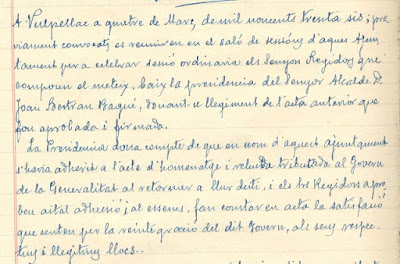 A Vulpellac a quatre de Març, de mil noucents trenta sis; pre,
viament convocats es reuniren en el saló de sessións d'aques Ajun-
tament per a celebrar sessió ordinaria els senyors Regidos que
composen el meteix, baix la presidencia del senyor Alcalde D.
Joan Bertran Bagué, donant-se llegiment de l'acta anterior que
fou aprobada i firmada.
La Presidencia dona compte de que en nom d'aquest ajuntament
s'havia adherit a l'acte d'homenatge i rebuda tributada al Govern
de la Generalitat al retornar a llur destí, i els srs Regidors apro-
ben aital adhesió; al essems, fan constar en acta la satisfacció
que senten per la reintegració del dit Govern, als seus respec-
tius i llegitims llocs..